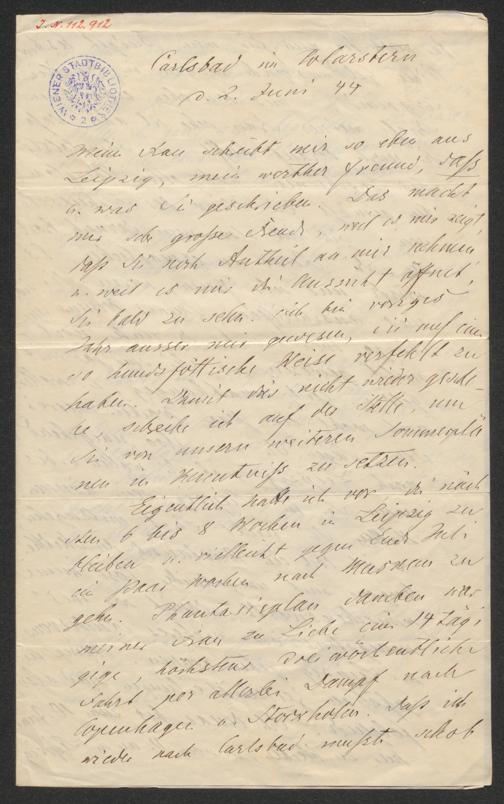 J.N. 112.912
WIENER STADTBIBLIOTHEK
Carlsbad im
d. 2. Juni 44
Meine Frau schreibt mir so eben aus
Leipzig, mein werther Freund, daß
u. was Sie geschrieben. Das macht
mir sehr große Freude, weil es mir zeigt,
daß Sie noch Antheil an mir nehmen,
u. weil es mir die Aussicht öffnet,
Sie bald zu sehn. Ich bin voriges
Jahr ausser mir gewesen, Sie auf eine
so hundsföttische Weise verfehlt zu
haben. Damit dies nicht wieder gesche-
he, schreibe ich auf der Stelle, um
Sie von unsern weiteren Sommerplä
nen in Kenntniß zu setzen.
Eigentlich hatte ich vor die näch
sten 6 bis 8 Wochen in Leipzig zu
bleiben u. vielleicht gegen Ende Juli
ein Paar Wochen nach zu
gehn. Phantasieplan daneben war
meiner Frau zu Liebe eine 14 tägi
gige, höchstens dreiwöchentliche
Fahrt per allerlei Dampf nach
Copenhagen u. Stockholm. Daß ich
wieder nach Carlsbad mußte schob